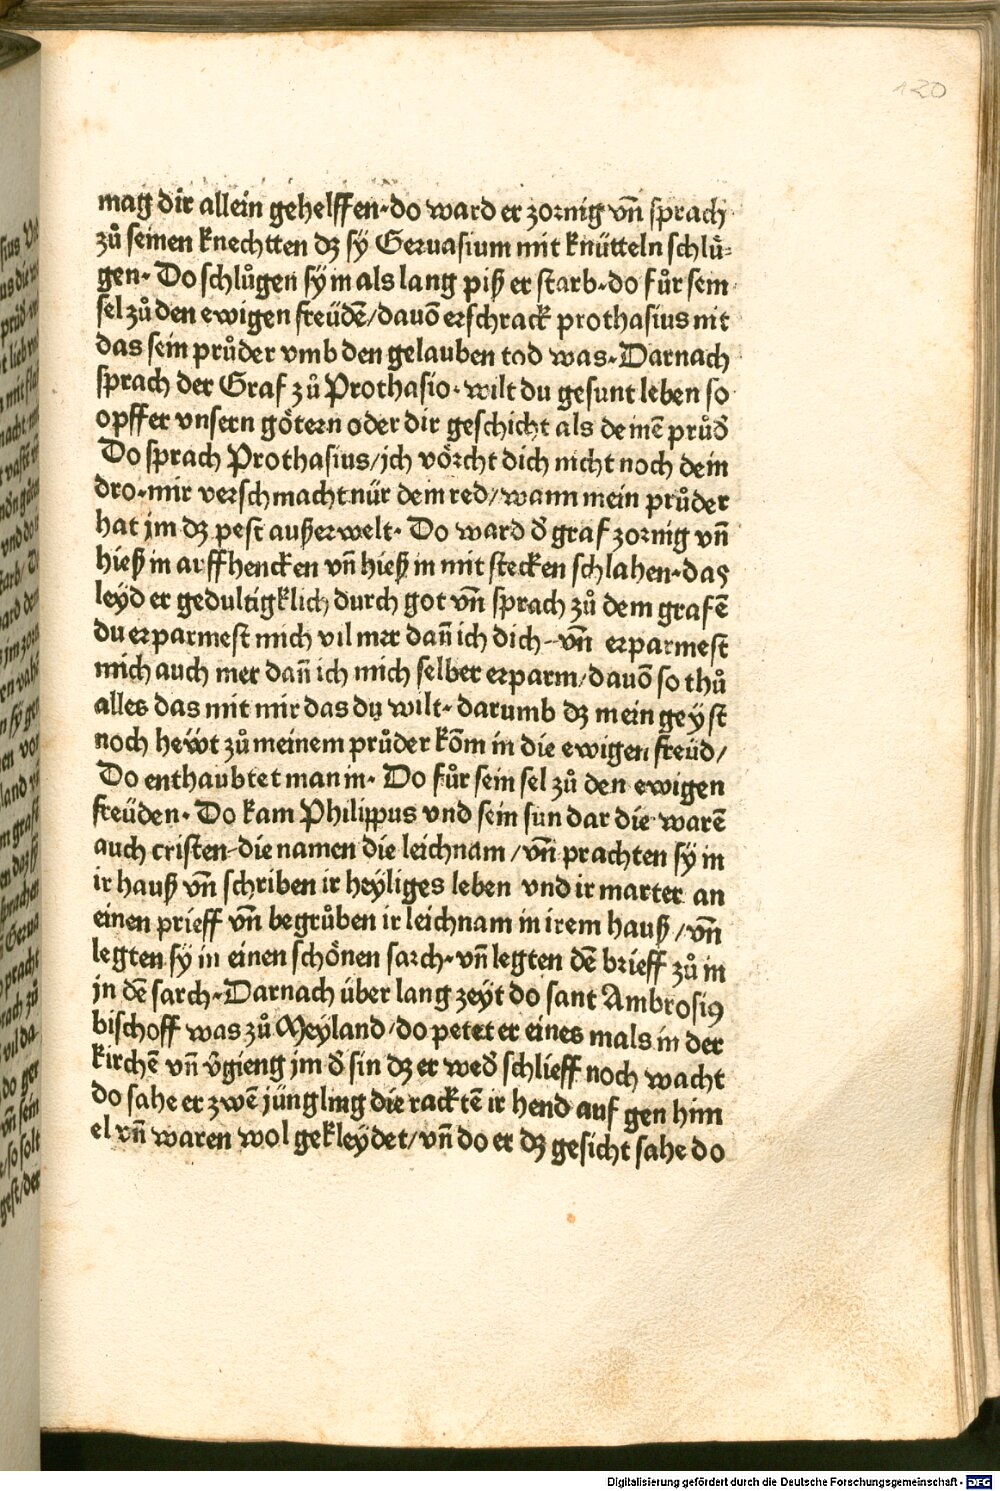 120
mag dir allein gehelffen·do ward er zornig vñ sprach
zů seinen knechtten dz sÿ Geruasium mit knütteln schlů⸗
gen· Do schlůgen sÿ in als lang piß er starb·do fůr sein
sel zů den ewigen freüdē/dauō erschrack prothasius nit
das sein průder vmb den gelauben tod was·Darnach
sprach der Graf zů Prothasio·wilt du gesunt leben so
opffer vnsern götern oder dir geschicht als deinē průd̕
Do sprach Prothasius/ich vörcht dich nicht noch dein
dro·mir verschmacht nür dein red/wann mein průder
hat jm dz pest außerwelt· Do ward d̕ graf zornig vñ
hieß in auffhencken vñ hieß in mit stecken schlahen·das
leyd er gedultigklich durch got vñ sprach zů dem grafē
du erparmest mich vil mer dañ ich dich·vñ erparmest
mich auch mer dañ ich mich selber erparm/dauō so thů
alles das mit mir das du wilt·darumb dz mein geyst
noch heẅt zů meinem průder kōm in die ewigen freüd/
Do enthaubtet man in· Do fůr sein sel zů den ewigen
freüden· Do kam Philippus vnd sein sun dar die warē
auch cristen·die namen die leichnam/vñ prachten sÿ in
ir hauß vñ schriben ir heÿliges leben vnd ir marter an
einen prieff vñ begrůben ir leichnam in irem hauß/vñ
legten sÿ in einen schönen sarch·vñ legten dē brieff zů in
jn dē sarch·Darnach über lang zeÿt do sant Ambrosiꝰ
bischoff was zů Meÿland/do petet er eines mals in der
kirchē vñ v̄gieng jm d̕ sin dz er wed̕ schlieff noch wacht
do sahe er zwē jüngling die racktē ir hend auf gen him
el vñ waren wol gekleydet/vñ do er dz gesicht sahe do
Digitalisierung gefördert durch die Deutsche Forschungsgemeinschaft - DFG